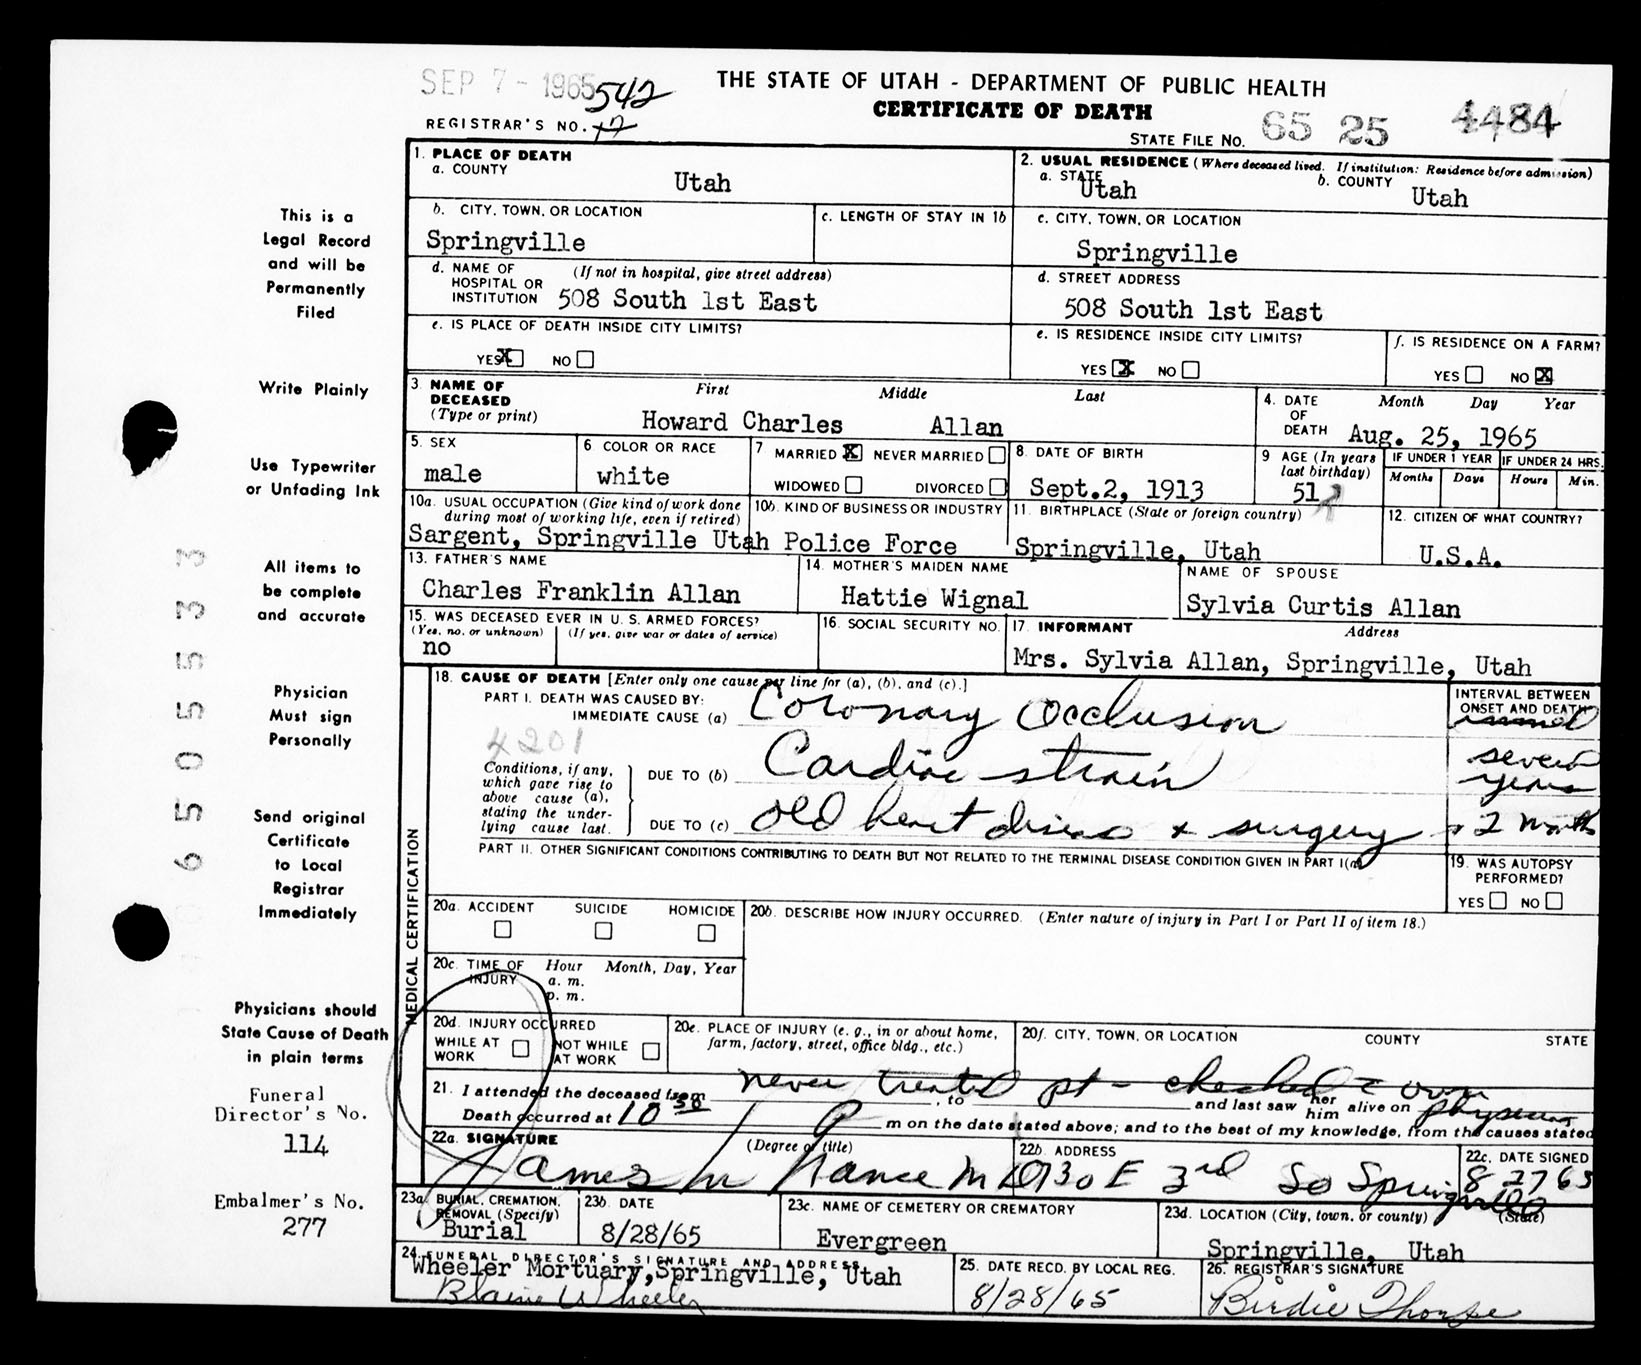 SEP 7 - 1965
542
THE STATE OF UTAH - DEPARTMENT OF PUBLIC HEALTH
CERTIFICATE OF DEATH
REGISTRAR'S NO. 17
STATE FILE NO. 65 25 4484
1. PLACE OF DEATH
a. COUNTY
Utah
2. USUAL RESIDENCE (Where deceased lived. If institution: Residence before admission)
a. STATE
Utah
b. COUNTY
Utah
This is a
Legal Record
and will be
Permanently
Filed
b. CITY, TOWN, OR LOCATION
Springville
c. LENGTH OF STAY IN 1b
c. CITY, TOWN, OR LOCATION
Springville
d. NAME OF HOSPITAL OR INSTITUTION
(If not in hospital, give street address)
508 South 1st East
d. STREET ADDRESS
508 South 1st East
e. IS PLACE OF DEATH INSIDE CITY LIMITS?
YES X NO
e. IS RESIDENCE INSIDE CITY LIMITS?
YES X NO
f. IS RESIDENCE ON A FARM?
YES NO X
Write Plainly
3. NAME OF DECEASED
(Type or print)
First Middle Last
Howard Charles Allan
4. DATE OF DEATH
Month Day Year
Aug. 25, 1965
Use Typewriter
or Unfading Ink
5. SEX
male
6 COLOR OR RACE
white
7 MARRIED X NEVER MARRIED
WIDOWED DIVORCED
8. DATE OF BIRTH
Sept.2, 1913
9 AGE (In years last birthday)
51
IF UNDER 1 YEAR
Months Days
IF UNDER 24 HRS.
Hours Min.
10a. USUAL OCCUPATION (Give kind of work done during most of working life, even if retired)
10b. KIND OF BUSINESS OR INDUSTRY
Sargent, Springville Utah Police Force
11. BIRTHPLACE (State or foreign country)
Springville, Utah
12. CITIZEN OF WHAT COUNTRY?
U.S.A.
All items to
be complete
and accurate
13. FATHER'S NAME
Charles Franklin Allan
14. MOTHER'S MAIDEN NAME
Hattie Wignal
NAME OF SPOUSE
Sylvia Curtis Allan
15. WAS DECEASED EVER IN U. S. ARMED FORCES?
(Yes, no, or unknown) (If yes, give war or dates of service)
no
16. SOCIAL SECURITY NO.
17. INFORMANT
Address
Mrs. Sylvia Allan, Springville, Utah
Physician
Must sign
Personally
MEDICAL CERTIFICATION
18. CAUSE OF DEATH [Enter only one cause per line for (a), (b), and (c).]
PART I. DEATH WAS CAUSED BY:
IMMEDIATE CAUSE (a) Coronary Occlusion
INTERVAL BETWEEN ONSET AND DEATH
4201
Conditions, if any, which gave rise to above cause (a), stating the underlying cause last.
DUE TO (b) Cardiac strain
several years
DUE TO (c) old heart disease + surgery
+ 2 months
Send original
Certificate
to Local
Registrar
Immediately
PART II. OTHER SIGNIFICANT CONDITIONS CONTRIBUTING TO DEATH BUT NOT RELATED TO THE TERMINAL DISEASE CONDITION GIVEN IN PART I(a)
19. WAS AUTOPSY PERFORMED?
YES NO
20a. ACCIDENT SUICIDE HOMICIDE
20b. DESCRIBE HOW INJURY OCCURRED. (Enter nature of injury in Part I or Part II of item 18.)
20c. TIME OF INJURY
Hour Month, Day, Year
a. m.
p. m.
Physicians should
State Cause of Death
in plain terms
20d. INJURY OCCURRED
WHILE AT WORK NOT WHILE AT WORK
20e. PLACE OF INJURY (e. g., in or about home, farm, factory, street, office bldg., etc.)
20f. CITY, TOWN, OR LOCATION COUNTY STATE
never treated pt - checked c own physician
21. I attended the deceased from , to and last saw her him alive on
Death occurred at 10 30 P m on the date stated above; and to the best of my knowledge, from the causes stated
Funeral
Director's No.
114
22a. SIGNATURE
(Degree or title)
James M Nance MD
22b. ADDRESS
930 E 3rd So Springville
22c. DATE SIGNED
8 27 65
Embalmer's No.
277
23a. BURIAL, CREMATION, REMOVAL (Specify)
Burial
23b. DATE
8/28/65
23c. NAME OF CEMETERY OR CREMATORY
Evergreen
23d. LOCATION (City, town, or county) (State)
Springville, Utah
24. FUNERAL DIRECTOR'S SIGNATURE AND ADDRESS
Wheeler Mortuary,Springville, Utah
Blaine Wheeler
25. DATE RECD. BY LOCAL REG.
8/28/65
26. REGISTRAR'S SIGNATURE
Birdie Thorpe
65055333